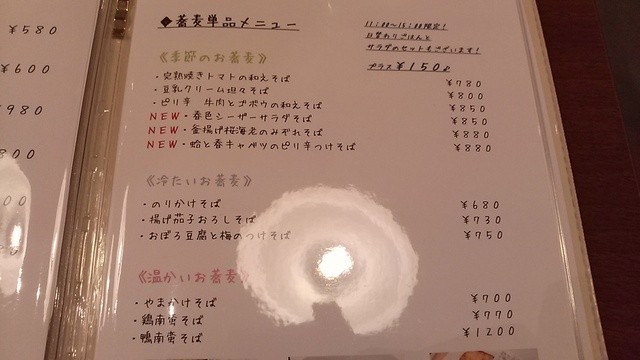 ¥580
¥600
¥980
800
00
00
◆蕎麦単品メニュー
11:00~15:00限定!
日替わりごはんと
サラダのセットもございます!
プラス ¥150
《季節のお蕎麦》
・完熟焼きトマトの和えそば ¥780
・豆乳クリーム坦々そば ¥800
・ピリ辛 牛肉とゴボウの和えそば ¥850
NEW・春色シーザーサラダそば ¥850
NEW・釜揚げ桜海老のみぞれそば ¥880
NEW・蛤と春キャベツのピリ辛つけそば ¥880
《冷たいお蕎麦》
・のりかけそば ¥680
・揚げ茄子おろしそば ¥730
・おぼろ豆腐と梅のつけそば ¥750
《温かいお蕎麦》
・やまかけそば ¥700
・鶏南蛮そば ¥770
・鴨南蛮そば ¥1200